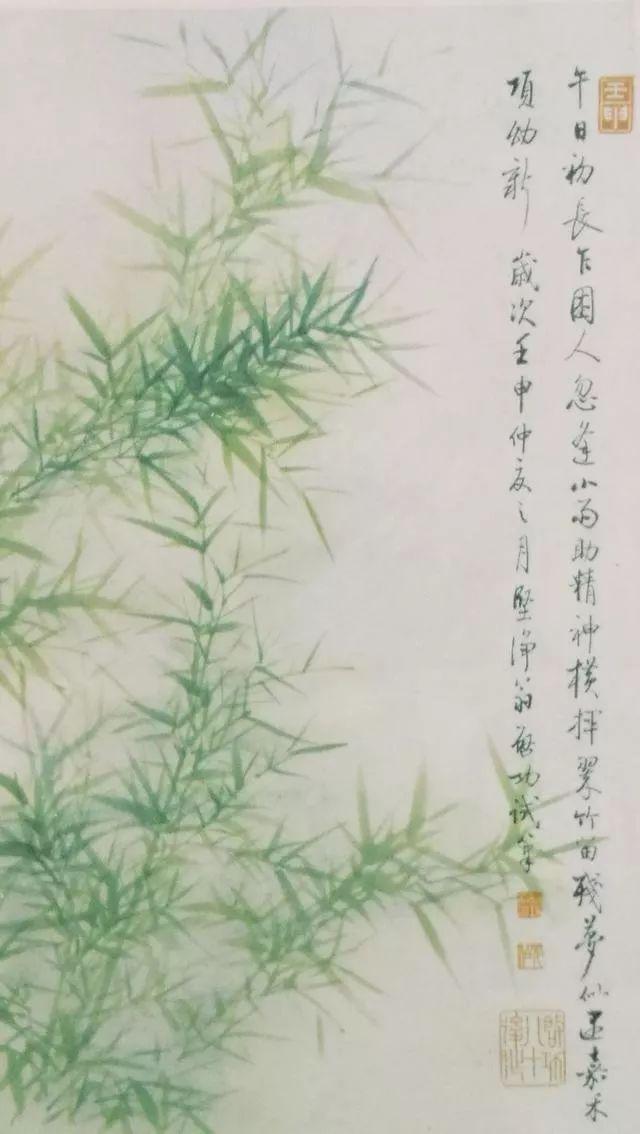 壬申
午日初長乍困人忽逢小雨助精神橫揮翠竹留殘夢似嘉禾
項幼新 歲次壬申仲夏之月堅淨翁啟功試筆